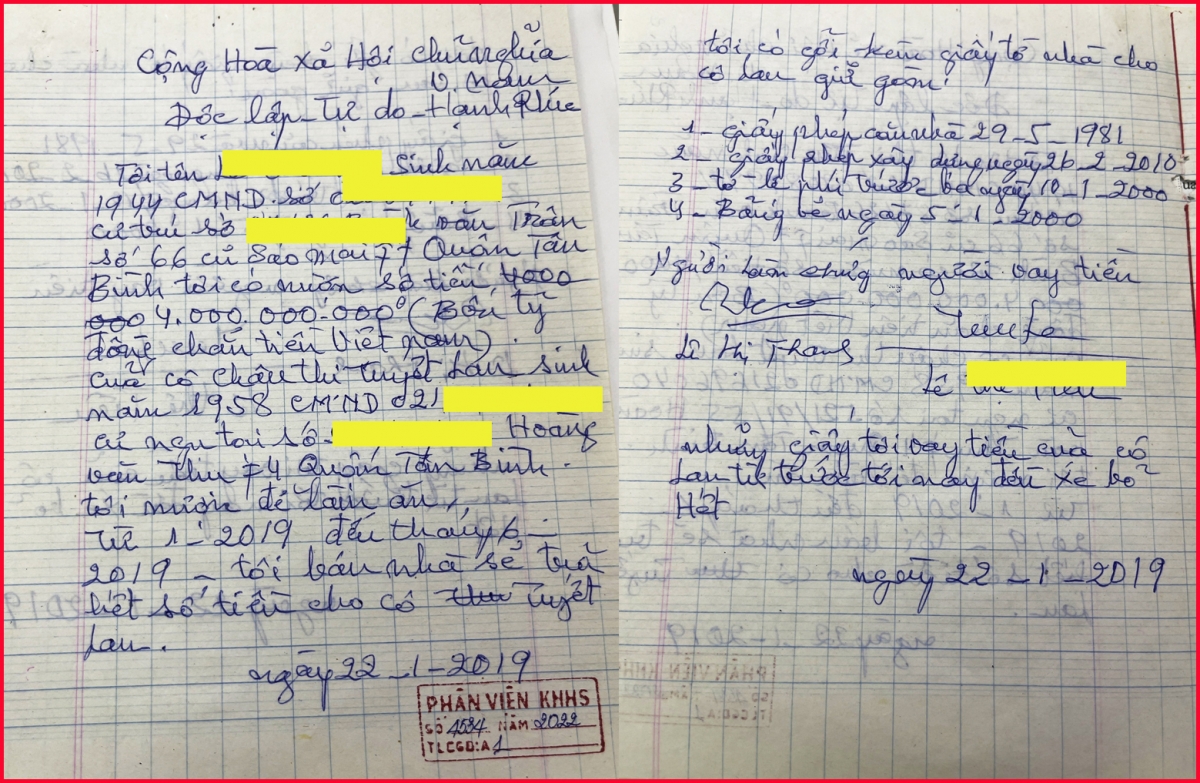 Cộng Hoà xả Hội chữ nghĩa
V. nam
Độc lập - Tự do - Hạnh Phúc
Tôi tên L Sinh năm
1944 CMND. số
cư trú số văn Trân
số 66 cũ Sao Mai F7 Quận Tân
Bình tôi có mượn số tiền 4000
000 4.000.000.000đ (Bốn tỷ
đồng chẵn tiền Việt nam)
của cô Châu thị tuyết Lan sinh
năm 1958 CMND 021
cư ngụ tại số Hoàng
văn thụ F4 Quận Tân Bình.
tôi mượn để làm ăn,
từ 1-2019 đến tháng 6-
2019 - tôi bán nhà sẻ trả
hết số tiền cho cô Tuyết
Lan.
ngày 22-1-2019
PHÂN VIỆN KHHS
SỐ 4584 NĂM 2022
TLCGĐ:A1
tôi có gỡi kèm giấy tờ nhà cho
cô Lan giữ gom.
1- giấy phép nhà 29-5-1981
2- giấy phép xây dựng ngày 26-2-2010
3- tờ lệ phí trước bạ ngày 10-1-2000
4- Bảng vẻ ngày 5-1-2000
Người làm chứng người vay tiền
Lê Thị Thanh
Lê
những giấy tôi vay tiền của cô
Lan từ trước tới nay đều xé bỏ
Hết
ngày 22-1-2019